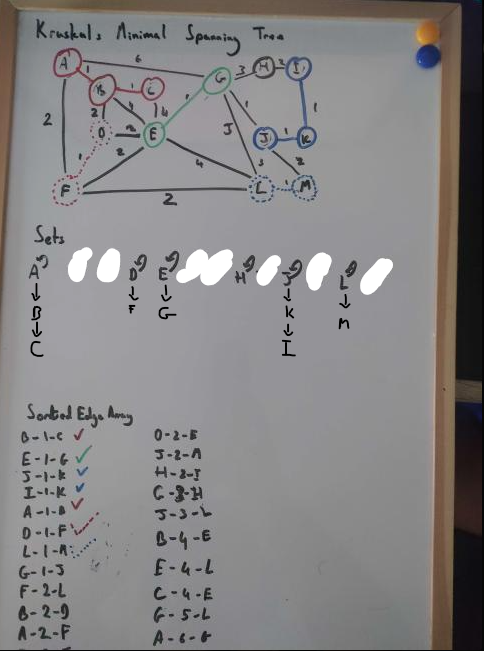 Kruskals Minimal Spanning Tree
A 6 G 3 H 2 I
1
B 1 C
2 4 4 1 1 1
2 D 2 E J 1 K
1 2 4 5 3 2
F 2 L 1 M
Sets
A D E H J L
B F G K M
C I
Sorted Edge Array
B-1-C
E-1-G
J-1-K
I-1-K
A-1-B
D-1-F
L-1-M
G-1-J
F-2-L
B-2-D
A-2-F
D-2-E
J-2-M
H-2-I
G-3-H
J-3-L
B-4-E
E-4-L
C-4-E
G-5-L
A-6-G